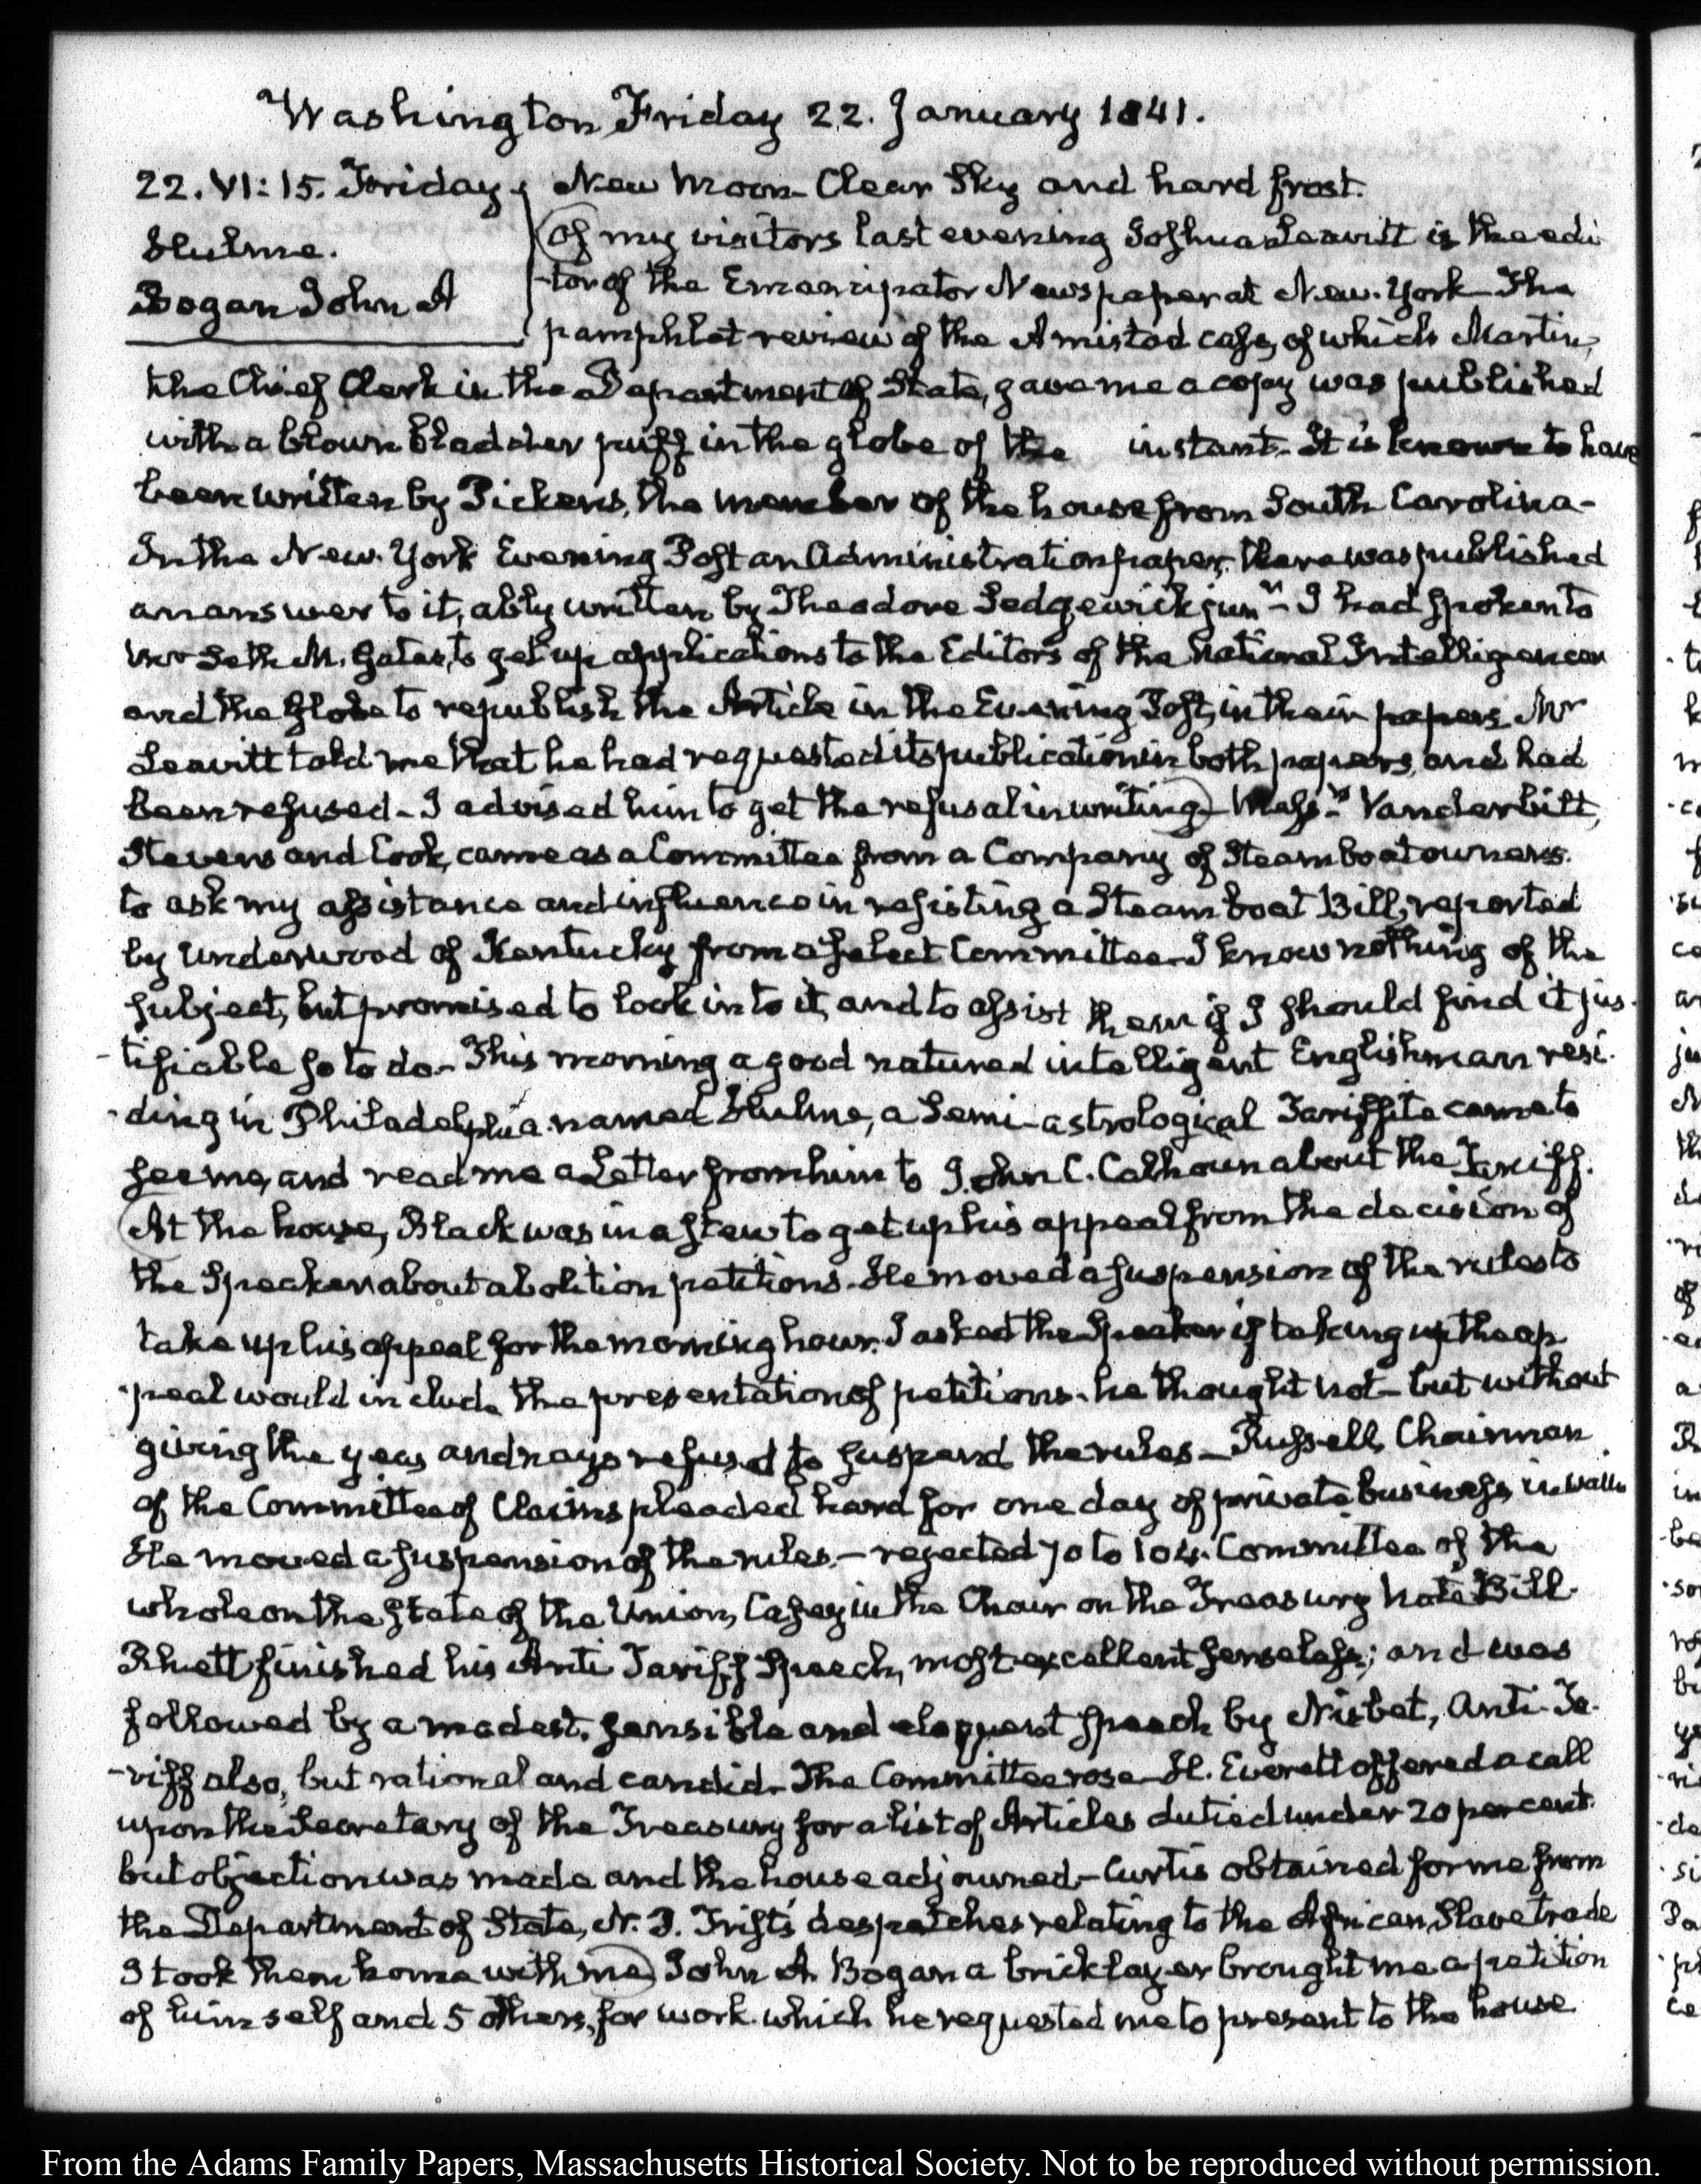 Washington Friday 22. January 1841.
22. VI: 15. Friday
Hulme.
Bogan John A
New Moon - Clear Sky and hard frost.
Of my visitors last evening Joshua Leavitt is the edi
-tor of the Emancipator Newspaper at New. York - The
pamphlet review of the Amistad case, of which Martin,
the Chief Clerk in the Department of State, gave me a copy was published
with a blown bladder puff in the globe of the instant - It is known to have
been written by Pickens, the member of the house from South Carolina -
In the New. York Evening Post an Administration paper, there was published
an answer to it, ably written by Theodore Sedgewick junr - I had spoken to
Mr Seth M. Gates, to get up applications to the Editors of the National Intelligencer
and the Globe to republish the Article in the Evening Post, in their papers Mr
Leavitt told me that he had requested its publication in both papers, and had
been refused - I advised him to get the refusal in writing - Messrs Vanderbilt,
Stevens and Cook, came as a Committee from a Company of Steam boat owners.
to ask my assistance and influence in resisting a Steam boat Bill, reported
by Underwood of Kentucky from a select Committee - I know nothing of the
subject, but promised to look into it, and to assist them if I should find it jus-
-tifiable so to do - This morning a good natured intelligent Englishman resi-
-ding in Philadelphia named Hulme, a Semi-astrological Tariffite came to
see me, and read me a Letter from him to John C. Calhoun about the Tariff.
At the house, Black was in a stew to get up his appeal from the decision of
the Speaker about abolition petitions. He moved a suspension of the rules to
take up his appeal for the morning hour. I asked the Speaker if taking up the ap
-peal would include the presentation of petitions - he thought not - but without
giving the yeas and nays refused to suspend the rules - Russell, Chairman
of the Committee of Claims pleaded hard for one day of private business, in vain
He moved a suspension of the rules. - rejected 70 to 104. Committee of the
whole on the State of the Union, Casey in the Chair on the Treasury Note Bill.
Rhett finished his Anti Tariff Speech, most excellent senseless; and was
followed by a modest, sensible and eloquent speech by Nisbet, Anti-Ta-
-riff also, but rational and candid - The Committee rose - H. Everett offered a call
upon the Secretary of the Treasury for a list of Articles dutied under 20 per cent.
but objection was made and the house adjourned - Curtis obtained for me from
the Department of State, N. P. Trist's despatches relating to the African Slave trade
I took them home with me John A. Bogan a bricklayer brought me a petition
of himself and 5 others, for work. which he requested me to present to the house
From the Adams Family Papers, Massachusetts Historical Society. Not to be reproduced without permission.